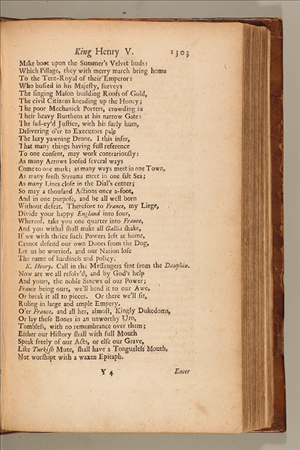 King Henry V. 1303
Make boot upon the Summer's Velvet buds:
Which Pillage, they with merry march bring home
To the Tent-Royal of their Emperor:
Who busied in his Majesty, surveys
The singing Mason building Roofs of Gold,
The civil Citizens kneading up the Honey;
The poor Mechanick Porters, crowding in
Their heavy Burthens at his narrow Gate:
The sad-ey'd Justice, with his surly hum,
Delivering o'er to Executors pale
The lazy yawning Drone. I this infer,
That many things having full reference
To one consent, may work contrariously:
As many Arrows loosed several ways
Come to one mark; as many ways meet in one Town,
As many fresh Streams meet in one salt Sea;
As many Lines close in the Dial's center;
So may a thousand Actions once a-foot,
And in one purpose, and be all well born
Without defeat. Therefore to France, my Liege,
Divide your happy England into four,
Whereof, take you one quarter into France,
And you withal shall make all Gallia shake.
If we with thrice such Powers left at home,
Cannot defend our own Doors from the Dog,
Let us be worried, and our Nation lose
The name of hardiness and policy.
K. Henry. Call in the Messengers sent from the Dauphin.
Now are we all resolv'd, and by God's help
And yours, the noble Sinews of our Power;
France being ours, we'll bend it to our Awe,
Or break it all to pieces. Or there we'll sit,
Ruling in large and ample Empery,
O'er France, and all her, almost, Kingly Dukedoms,
Or lay these Bones in an unworthy Urn,
Tombless, with no remembrance over them;
Either our History shall with full Mouth
Speak freely of our Acts, or else our Grave,
Like Turkish Mute, shall have a Tongueless Mouth,
Not worshipt with a waxen Epitaph.
Y 4 Enter